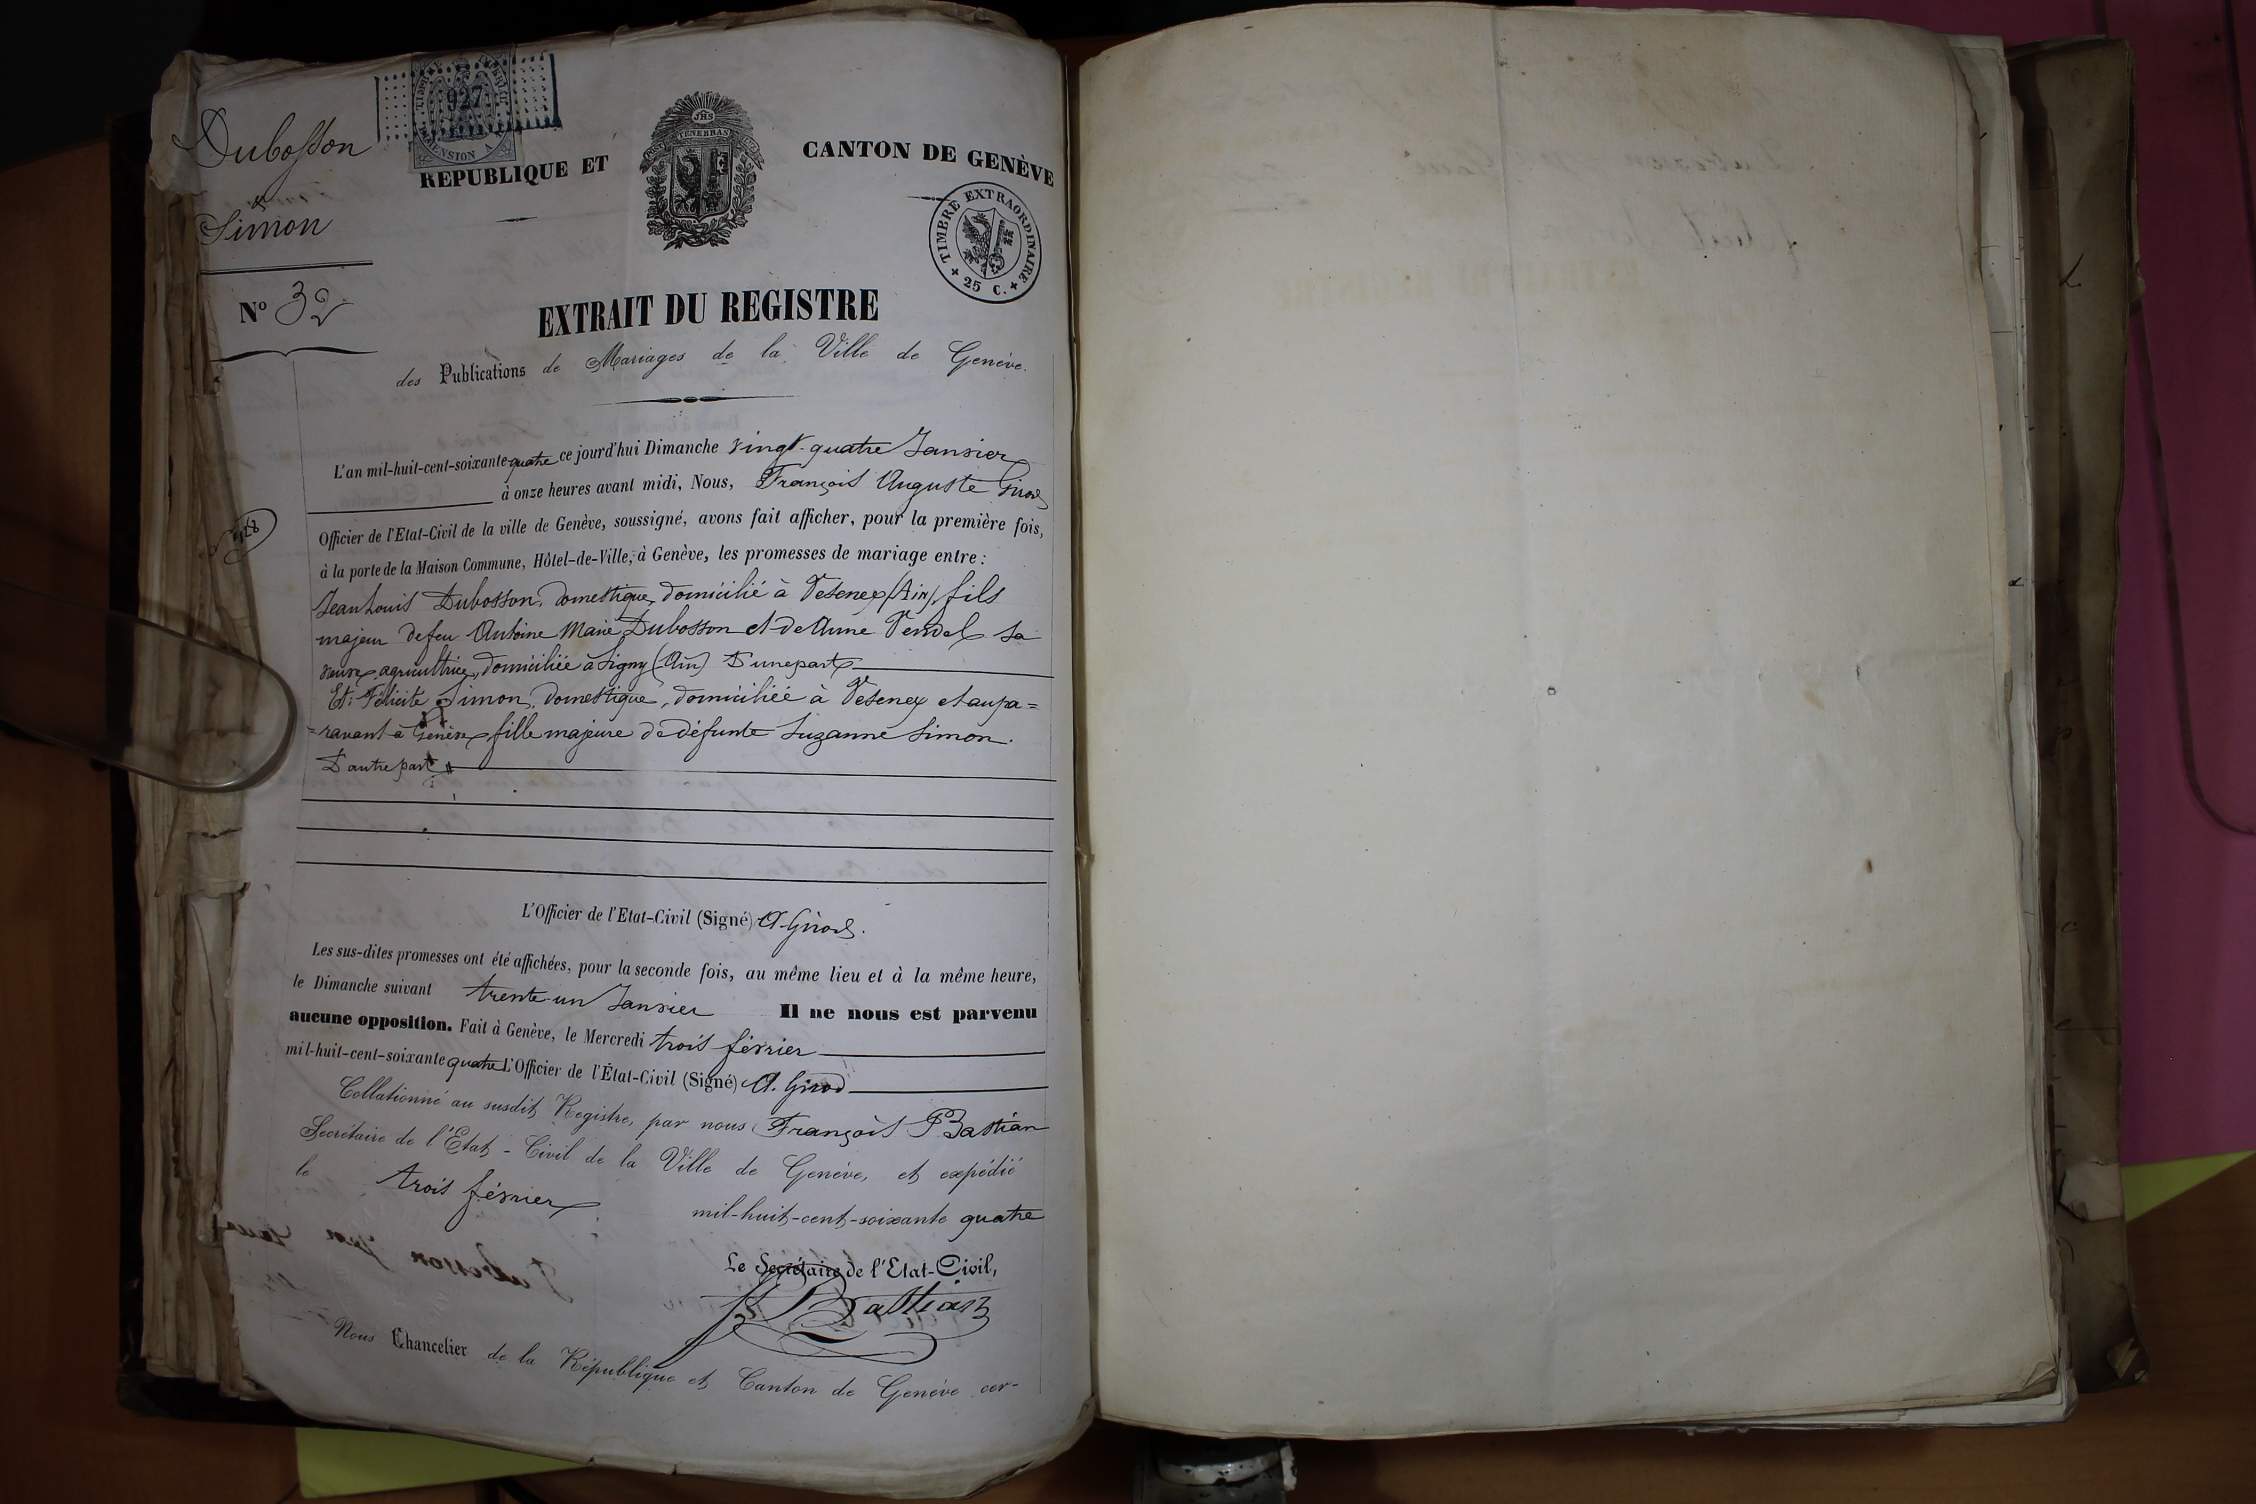 Dubosson
&
Simon
N° 32
927
DIMENSION
RÉPUBLIQUE ET
JHS
TENEBRAS
CANTON DE GENÈVE
TIMBRE EXTRAORDINAIRE
+ 25 C. +
EXTRAIT DU REGISTRE
des Publications de Mariages de la Ville de Genève.
L'an mil-huit-cent-soixante quatre ce jourd'hui Dimanche vingt-quatre Janvier
à onze heures avant midi, Nous, François Auguste Girod
Officier de l'Etat-Civil de la ville de Genève, soussigné, avons fait afficher, pour la première fois,
à la porte de la Maison Commune, Hôtel-de-Ville, à Genève, les promesses de mariage entre:
Jean Louis Dubosson, domestique, domicilié à Vesenex (Ain), fils
majeur de feu Antoine Marie Dubosson et de Anne Pendel sa
veuve, agricultrice, domiciliée à Ligny (Ain) D'une part
Et: Félicite Simon, domestique, domiciliée à Vesenex et aupa=
=ravant à Genève, fille majeure de défunte Suzanne Simon.
D'autre part
L'Officier de l'Etat-Civil (Signé) A. Girod.
Les sus-dites promesses ont été affichées, pour la seconde fois, au même lieu et à la même heure,
le Dimanche suivant trente-un Janvier Il ne nous est parvenu
aucune opposition. Fait à Genève, le Mercredi trois février
mil-huit-cent-soixante quatre L'Officier de l'État-Civil (Signé) A. Girod
Collationné au susdit Registre, par nous François Bastian
Secrétaire de l'Etat-Civil de la Ville de Genève, et expédié
le trois février mil-huit-cent-soixante quatre
Le Secrétaire de l'Etat-Civil,
F Bastian
Nous Chancelier de la République et Canton de Genève cer-